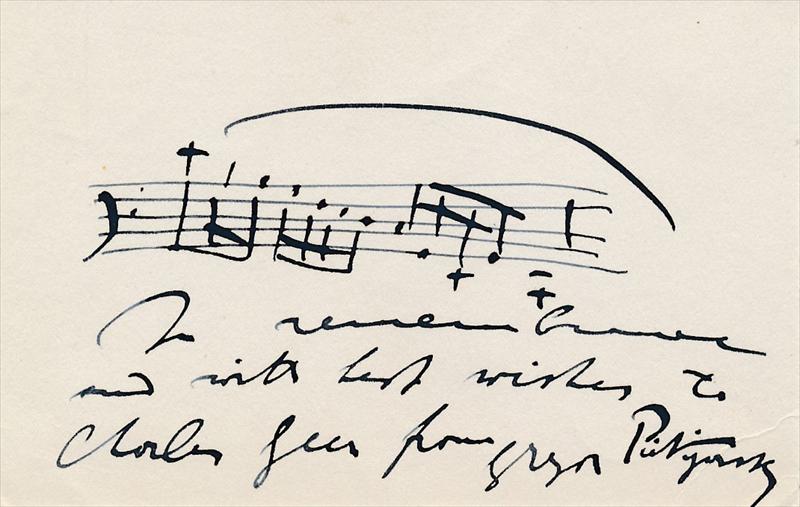 In remembrance
and with best wishes to
Charles Geer from Gregor Piatigorsky